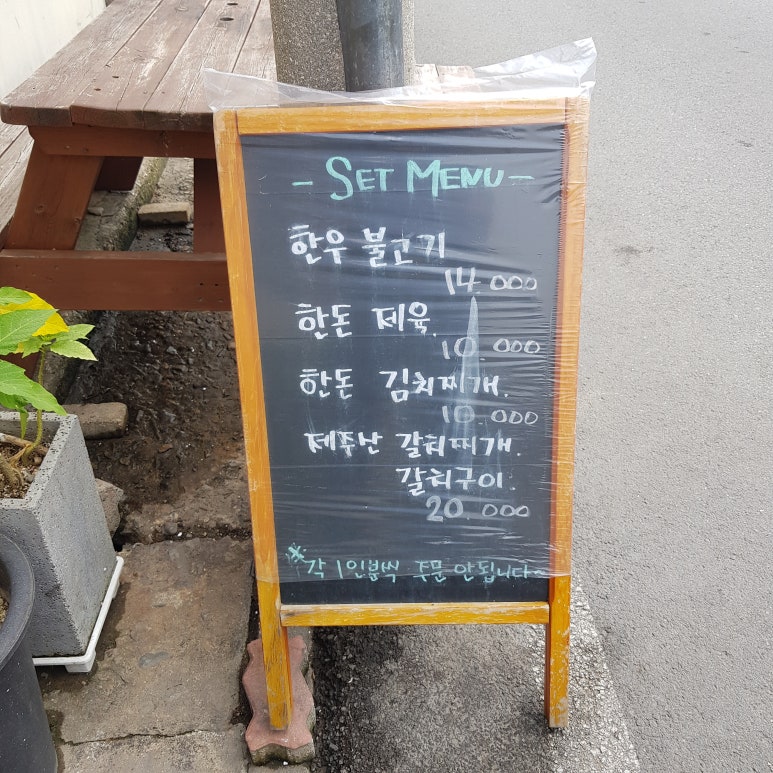 - SET MENU -
한우 불고기
14.000
한돈 제육.
10.000
한돈 김치찌개.
10.000
제주난 갈치찌개.
갈치구이.
20.000
* 각 1인분씩 주문 안됩니다~